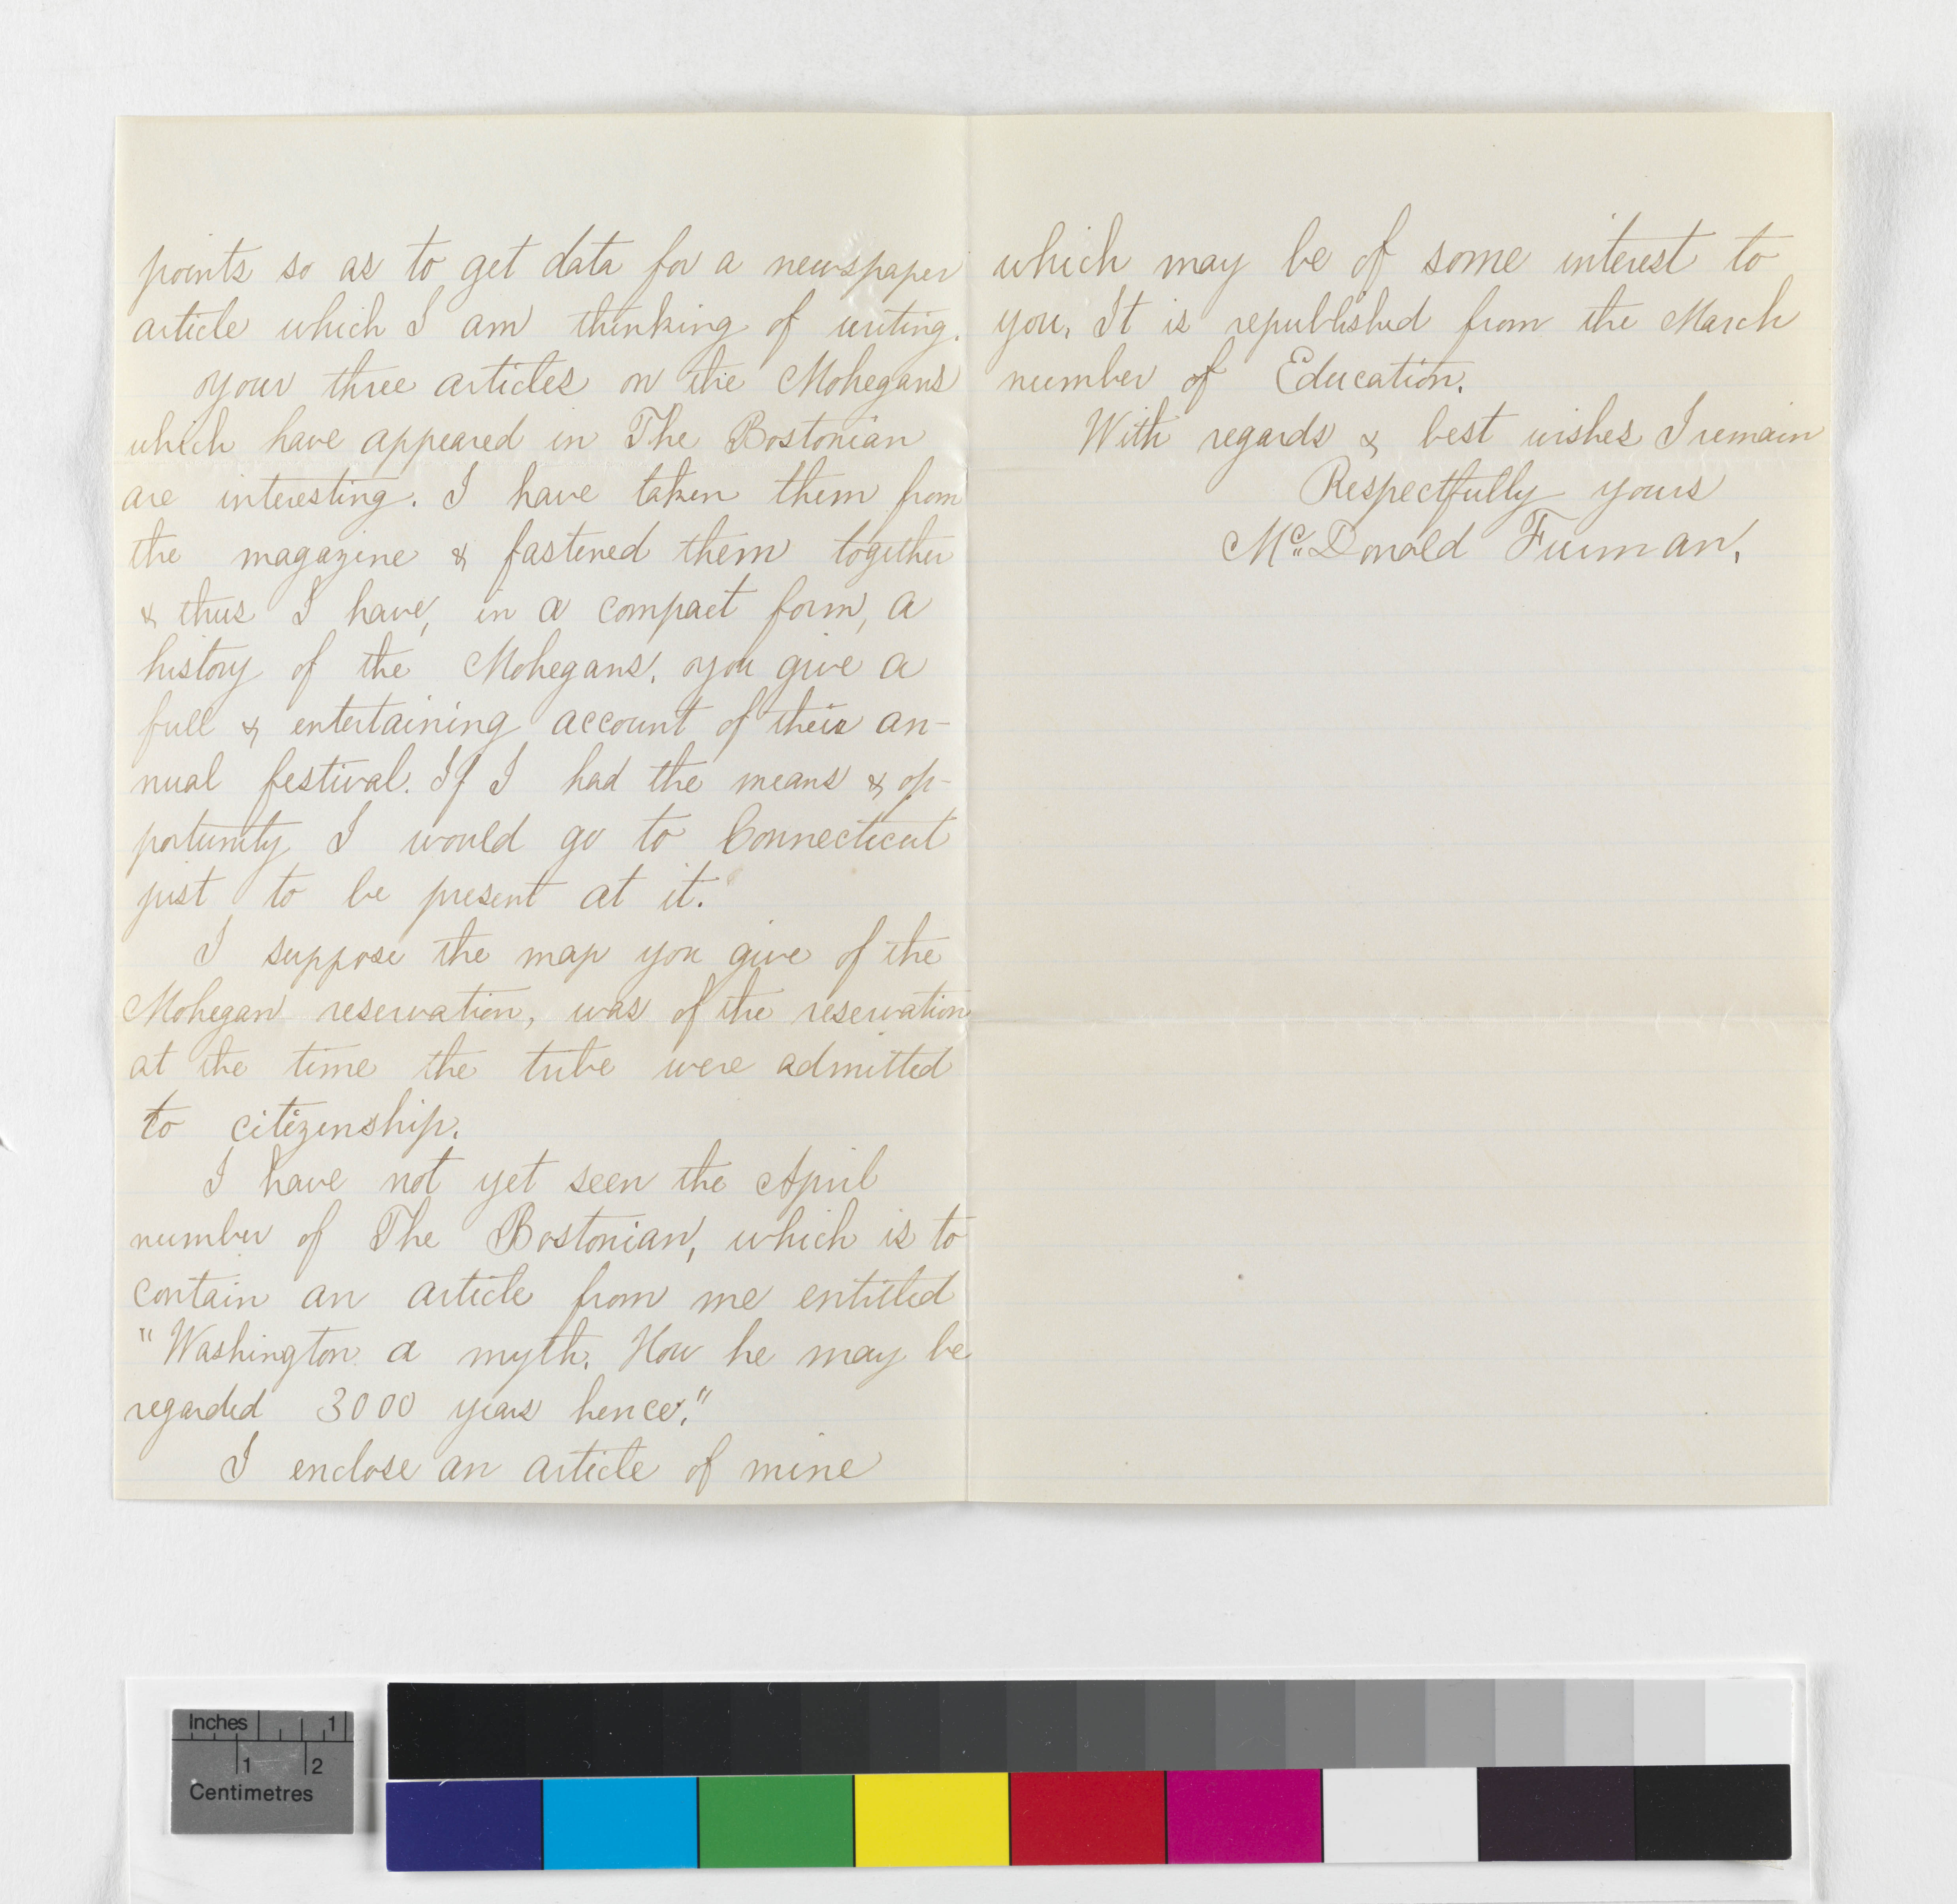 points so as to get data for a newspaper
article which I am thinking of writing.
Your three articles on the Mohegans
which have appeared in The Bostonian
are interesting. I have taken them from
the magazine & fastened them together
& thus I have, in a compact form, a
history of the Mohegans. You give a
full & entertaining account of their an-
nual festival. If I had the means & op-
portunity I would go to Connecticut
just to be present at it.
I suppose the map you give of the
Mohegan reservation, was of the reservation
at the time the tribe were admitted
to citizenship.
I have not yet seen the April
number of The Bostonian, which is to
contain an article from me entitled
"Washington a myth. How he may be
regarded 3000 years hence."
I enclose an article of mine
which may be of some interest to
you. It is republished from the March
number of Education.
With regards & best wishes I remain
Respectfully yours
McDonald Furman.
Inches 1
1 2
Centimetres